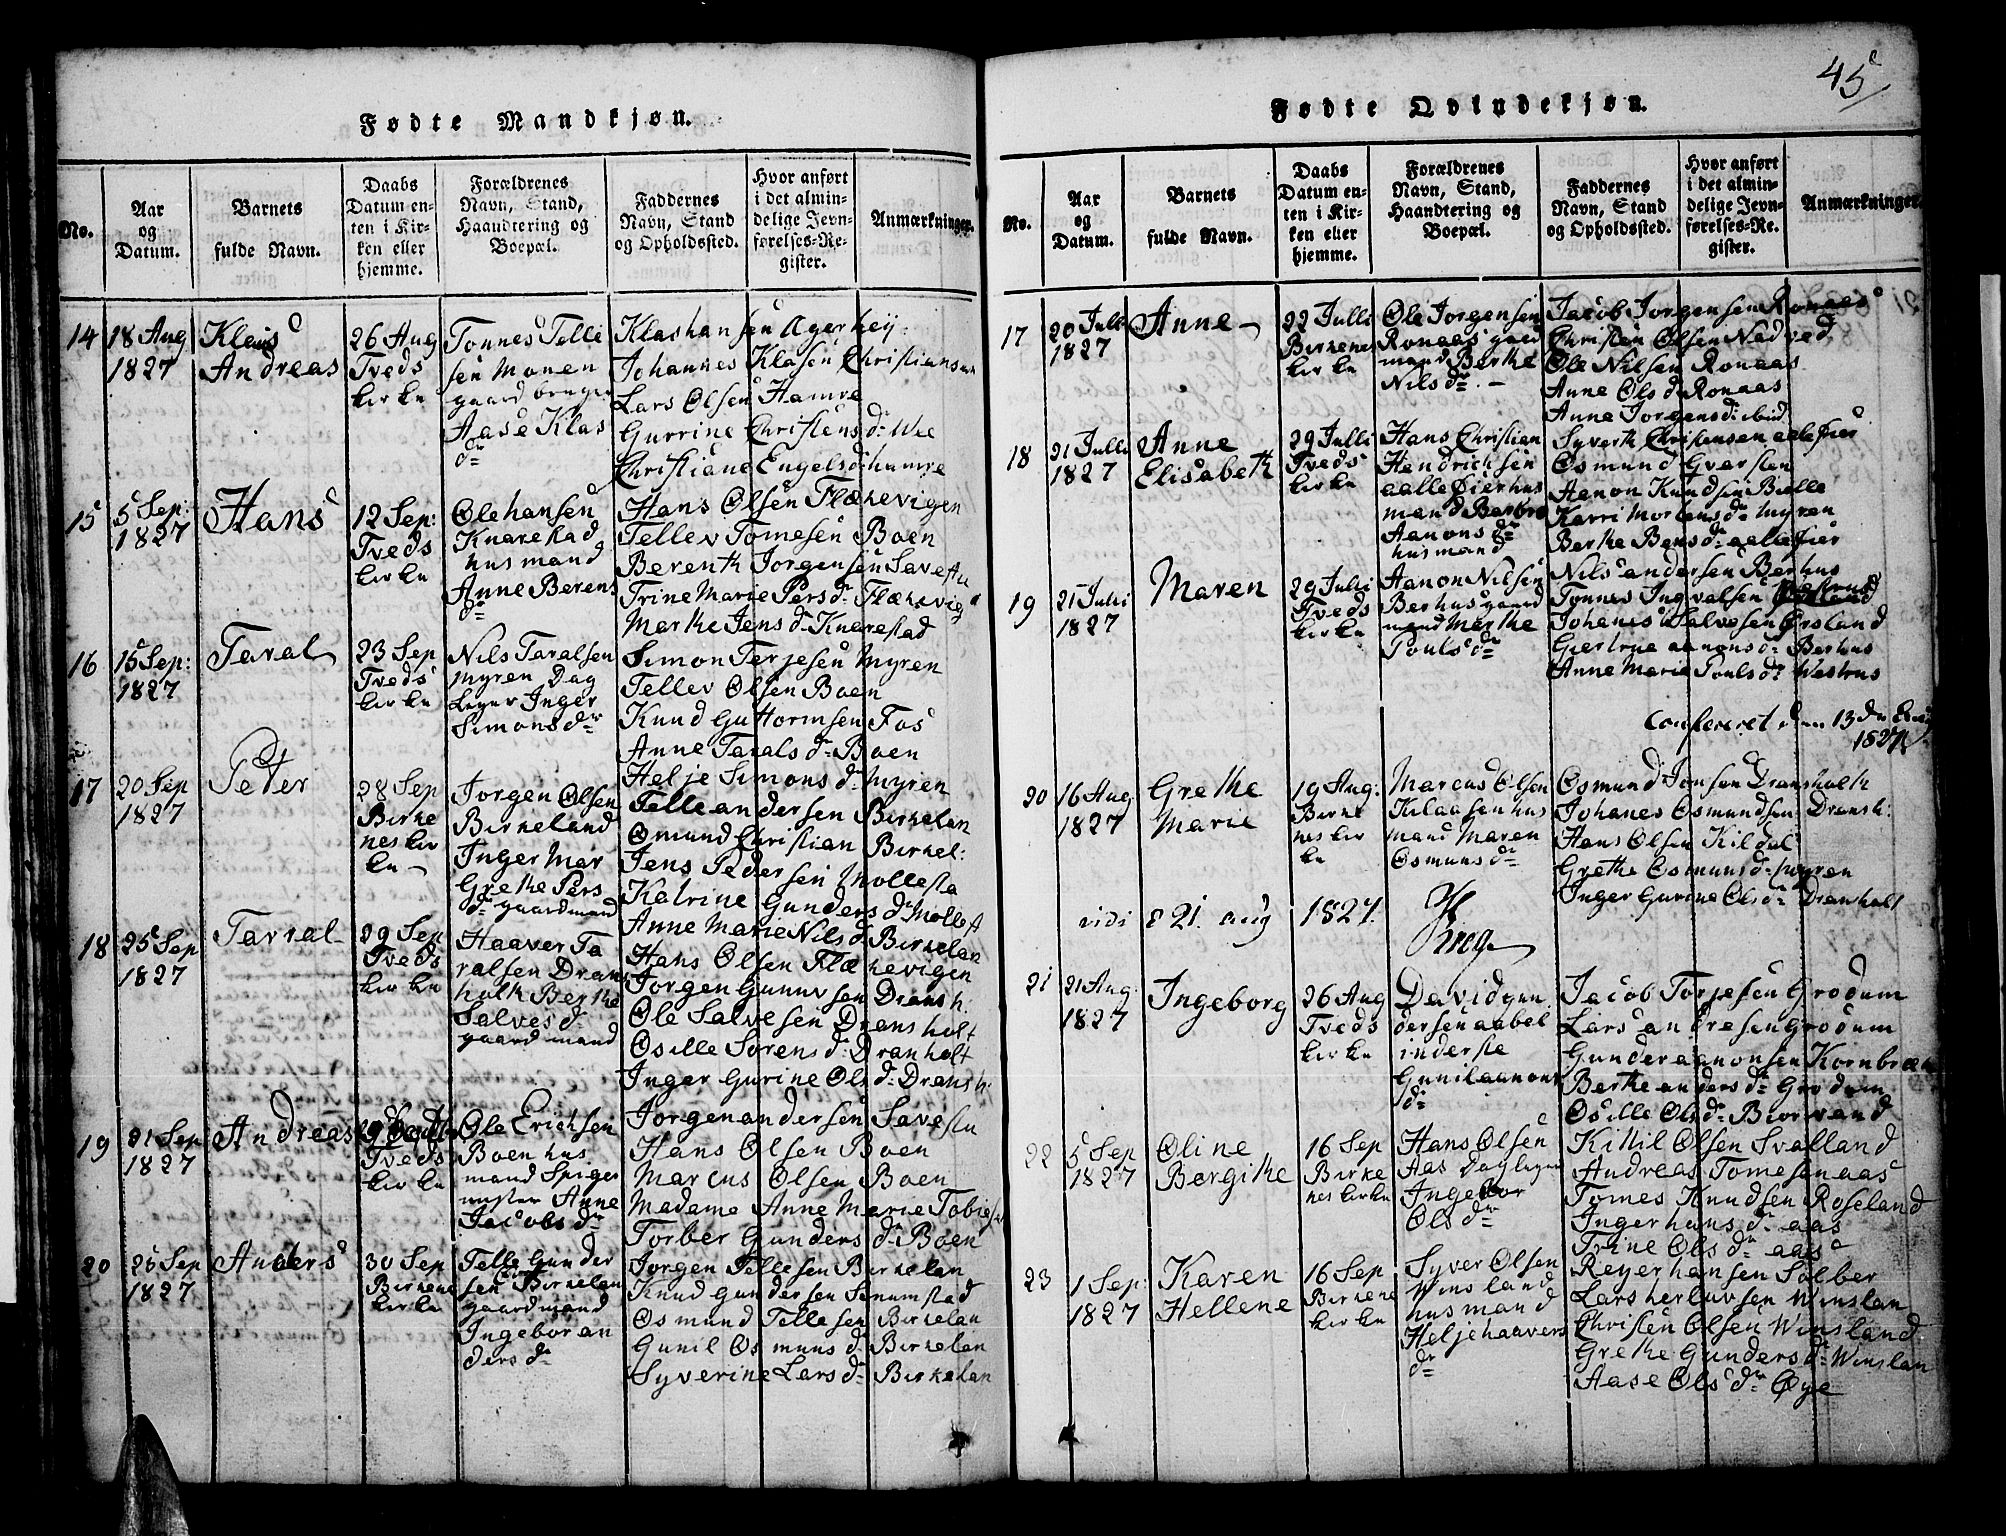 45
Fødte Mandkjøn.
No.
Aar
og
Datum.
Barnets
fulde Navn.
Daabs
Datum en-
ten i Kir-
ken eller
hjemme.
Forældrenes
Navn, Stand,
Haandtering og
Boepæl.
Faddernes
Navn, Stand
og Opholdssted.
Hvor anført
i det almin-
delige Jevn-
førelses-Re-
gister.
Anmærkninger.
14
18 Aug
1827
Klaus
Andreas
26 Aug
Tveds
kirke
Tonnes Telli
sen Monen
gaard bruger
Aase Klas
dr
Klas hansen Agerhey:
Johannes Klasen Christians
Lars Olsen Hamre
Gurrine Christens dr Wee
Christiane Engels dr hamre
15
5 Sep:
1827
Hans
12 Sep:
Tveds
kirke
Ole hansen
Knarestad
husmand
Anne Berens
dr
Hans Olsen Flækevigen
Tellev Tomesen Boen
Berenth Jorgensen Savestu
Trine Marie Pers dr Flækevig
Marthe Jens dr Knarestad
16
15 Sep:
1827
Taral
23 Sep
Tveds
kirke
Nils Taralsen
Myren Dag
leyer Inger
Simons dr
Simon Terjesen Myren
Tellev Olsen Boen
Knud Guttormsen Fos
Anne Tarals dr Boen
Helje Simons dr Myren
17
20 Sep
1827
Peter
28 Sep
Birke
nes kir
ke
Jorgen Olsen
Birkeland
Inger Mar
Grethe Pers
dr gaardmand
Telle andersen Birkelan
Osmund Christian Birkel:
Jens Pedersen Mollesta
Katrine Gunders dr Mollest
Anne Marie Nils d Birkelan
18
25 Sep
1827
Tarral
29 Sep
Tveds
kirke
Haaver Ta
ralsen Drans
holt Berthe
Salves dr
gaardmand
Hans Olsen Flækevigen
Jorgen Gunnersen Dransh:
Ole Salvesen Dransholt
Osille Sorens dr Dranholt
Inger Gurine Ols dr Dransh:
19
21 Sep
1827
Andreas
Tveds
kirke
Ole Erichsen
Boen hus
mand Spiger
mester Anne
Jacobs dr
Jorgen andersen Savestu
Hans Olsen Boen
Marcus Olsen Boen
Madame Anne Marie Tobies
Torber Gunders dr Boen
20
25 Sep
1827
Anders
30 Sep
Birkene
kirke
Telle Gunder
sen Birkelan
gaardmand
Ingebor an
ders dr
Jorgen Tellesen Birkelan
Knud Gundersen Senumstad
Osmund Tellesen Birkelan
Gunil Osmuns dr Birkelan
Syverine Lars dr Birkelan
Fødte Qvindekjøn.
No.
Aar
og
Datum.
Barnets
fulde Navn.
Daabs
Datum en-
ten i Kir-
ken eller
hjemme.
Forældrenes
Navn, Stand,
Haandtering og
Boepæl.
Faddernes
Navn, Stand
og Opholdssted.
Hvor anført
i det almin-
delige Jevn-
førelses-Re-
gister.
Anmærkninger.
17
20 Julli
1827
Anne
22 Julli
Birkenes
kirke
Ole Jorgensen
Ronaas gaard
mand Berthe
Nils dr
Jacob Jorgensen Ronaas
Christen Olsen Nedved
Ole Nilsen Ronaas
Anne Ols d Ronaas
Anne Jorgens dr ibid
18
21 Julli
1827
Anne
Elisabeth
29 Julli
Tveds
kirke
Hans Christian
Hendrichsen
aalle fierhus
mand Berbro
Aanons dr
husmand
Syverth Christensen aallefier
Osmund Gversten
Aanon Knudsen Bielle
Karri Mortens dr Myren
Berthe Bens dr aallefier
19
21 Julli
1827
Maren
29 Julli
Tveds
kirke
Aanon Nilsen
Berhus gaard
mand Marthe
Pouls dr
Nils andersen Berhus
Tonnes Ingvalsen
Johanis Salvesen Grsland
Giertrue aanons dr Berhus
Anne Marie Pouls dr Westrus
Confereret den 13de Aug
1827
20
16 Aug
1827
Grethe
Marie
19 Aug:
Birke
nes kir
ke
Marcus Olsen
Kilaasen hus
mand Maren
Osmuns dr
Osmund Jonsen Dransholt
Johanes Osmundsen Dransh:
Hans Olsen Kildal
Grethe Osmuns dr Myren
Inger Gurine Ols dr Dranholt
vidi d 21. aug 1827.
21
21 Aug.
1827
Ingeborg
26 Aug
Tveds
kirke
David gun
dersen aabel
inderste
Gunil aanons
dr
Jacob Torjesen Grodum
Lars andresen Grodum
Gunder aanonsen Kornbræk
Berthe anders dr Grodum
Osille Ols dr Biorvand
22
5 Sep
1827
Oline
Bergithe
16 Sep
Birke
nes kirke
Hans Olsen
Aas Dagleyer
Ingebor
Ols dr
Kittil Olsen Svalland
Andreas Tomesen aas
Tomes Knudsen Roseland
Inger hans dr aas
Trine Ols dr aas
23
1 Sep:
1827
Karen
Hellene
16 Sep
Birkene
kirke
Syver Olsen
Winsland
husmand
Helje haavers
dr
Reyer hansen Solber
Lars herluvsen Winslan
Christen Olsen Winsland
Grethe Gunders dr Winslan
Aase Ols dr Øye